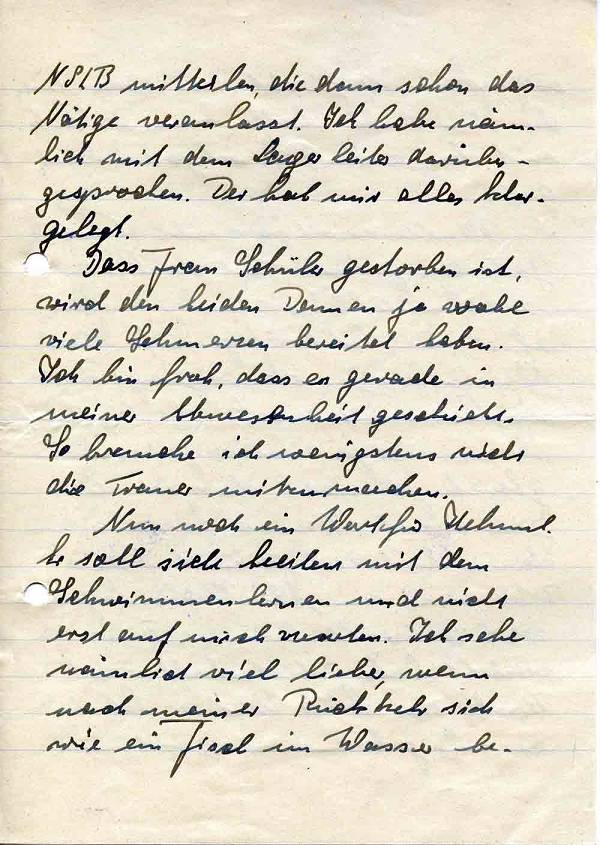 NSLB mitteilen, die dann schon das
Nötige veranlasst. Ich habe näm-
lich mit dem Lagerleiter darüber
gesprochen. Der hat mir alles klar-
gelegt.
Dass Frau Schüler gestorben ist,
wird den beiden Damen ja wohl
viele Schmerzen bereitet haben.
Ich bin froh, dass es gerade in
meiner Abwesenheit geschieht.
So brauche ich wenigstens nicht
die Trauer mitzumachen.
Nun noch ein Wort für Helmut.
Er soll sich beeilen mit dem
Schwimmenlernen und nicht
erst auf mich warten. Ich sehe
nämlich viel lieber, wenn
nach meiner Rückkehr sich
wie ein Fisch im Wasser be-